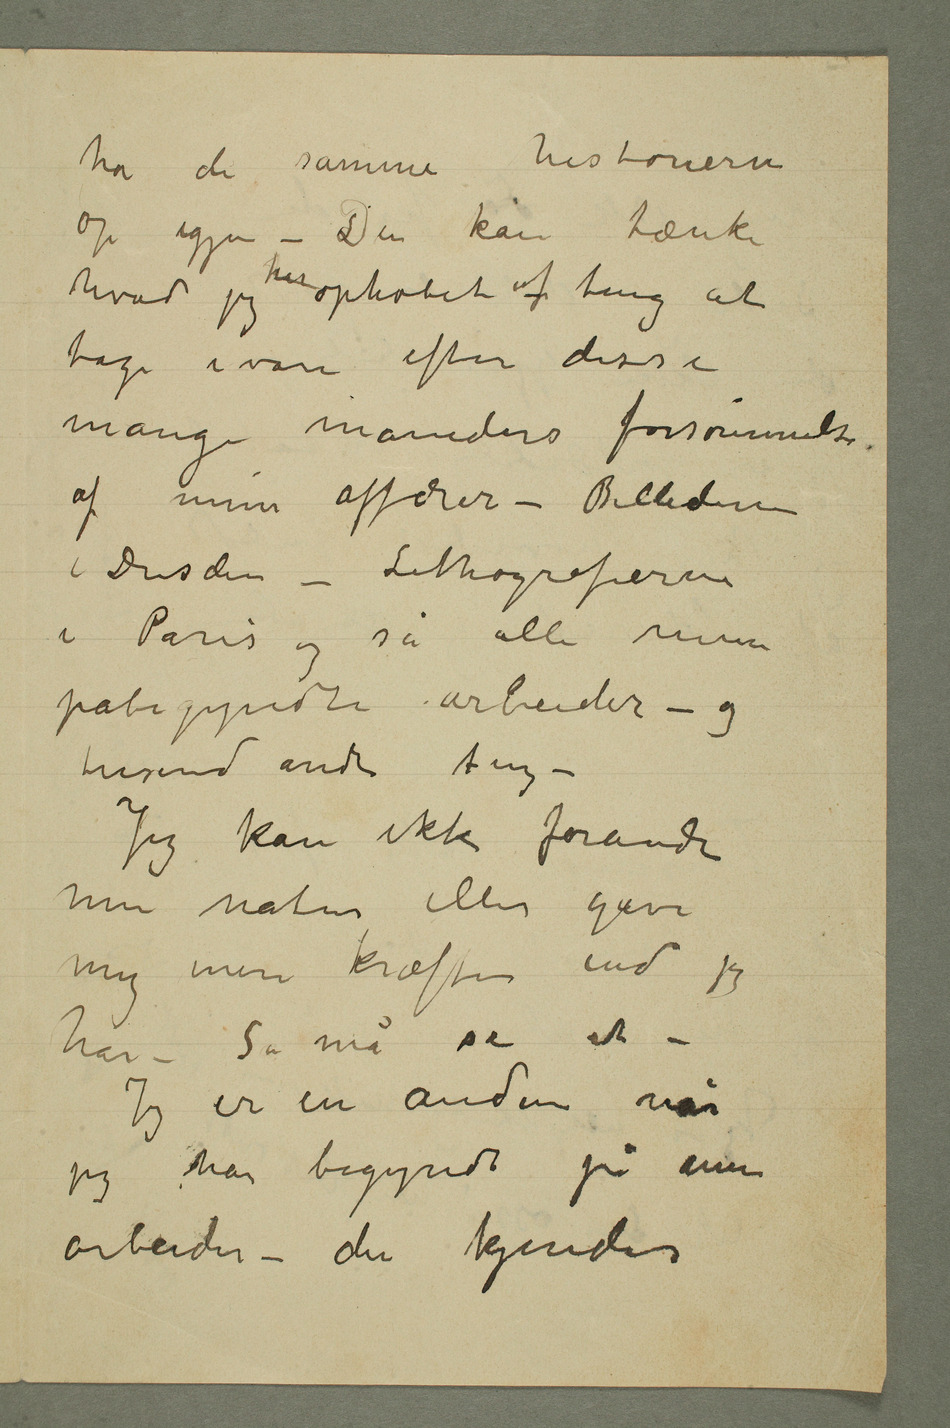 ha de samme historierne
op igjen – Du kan tænke
hvad jeg har ophobet af ting at
tage ivare efter disse
mange måneders forsømmelse
af mine affærer – Billederne
i Dresden – Lithografierne
i Paris og så alle mine
påbegyndte arbeider – og
tusend andre ting –
Jeg kan ikke forandre
min natur eller gjøre
mig mere kræfter end jeg
har – Så må se at –
Jeg er en anden når
jeg har begyndt på mine
arbeider – du kjender